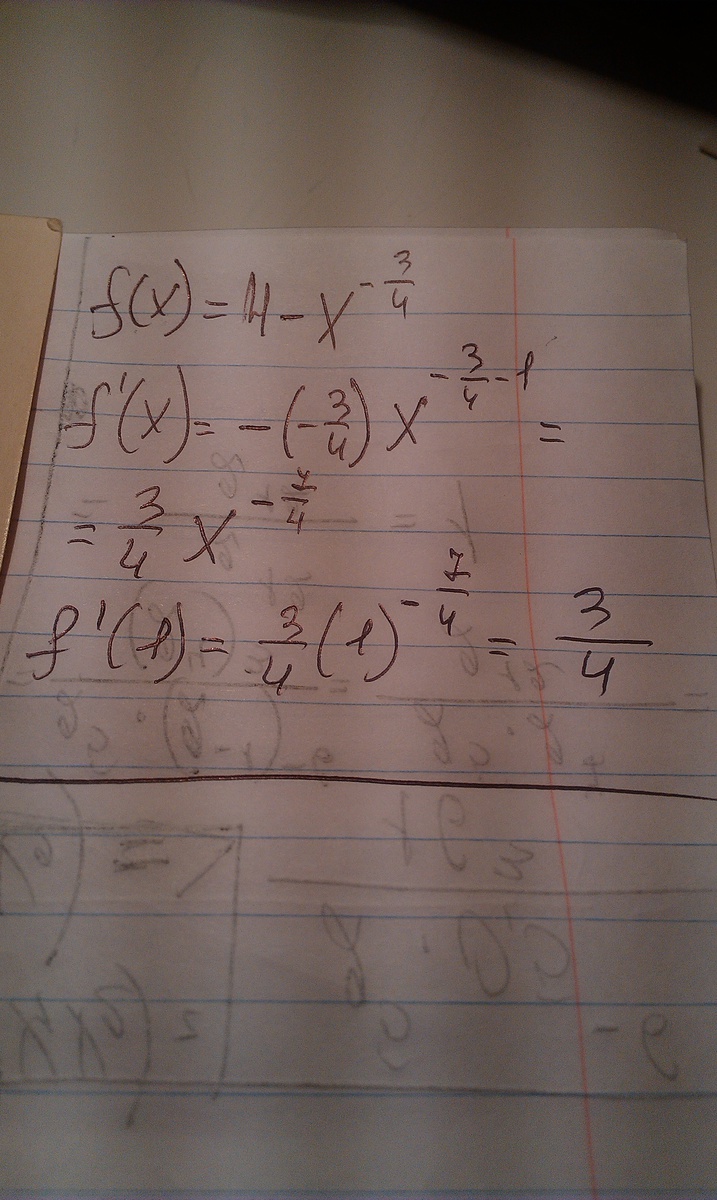 f(x) = 4 - x^{-\frac{3}{4}}
f'(x) = -(-\frac{3}{4}) x^{-\frac{3}{4}-1} =
= \frac{3}{4} x^{-\frac{7}{4}}
f'(1) = \frac{3}{4} (1)^{-\frac{7}{4}} = \frac{3}{4}